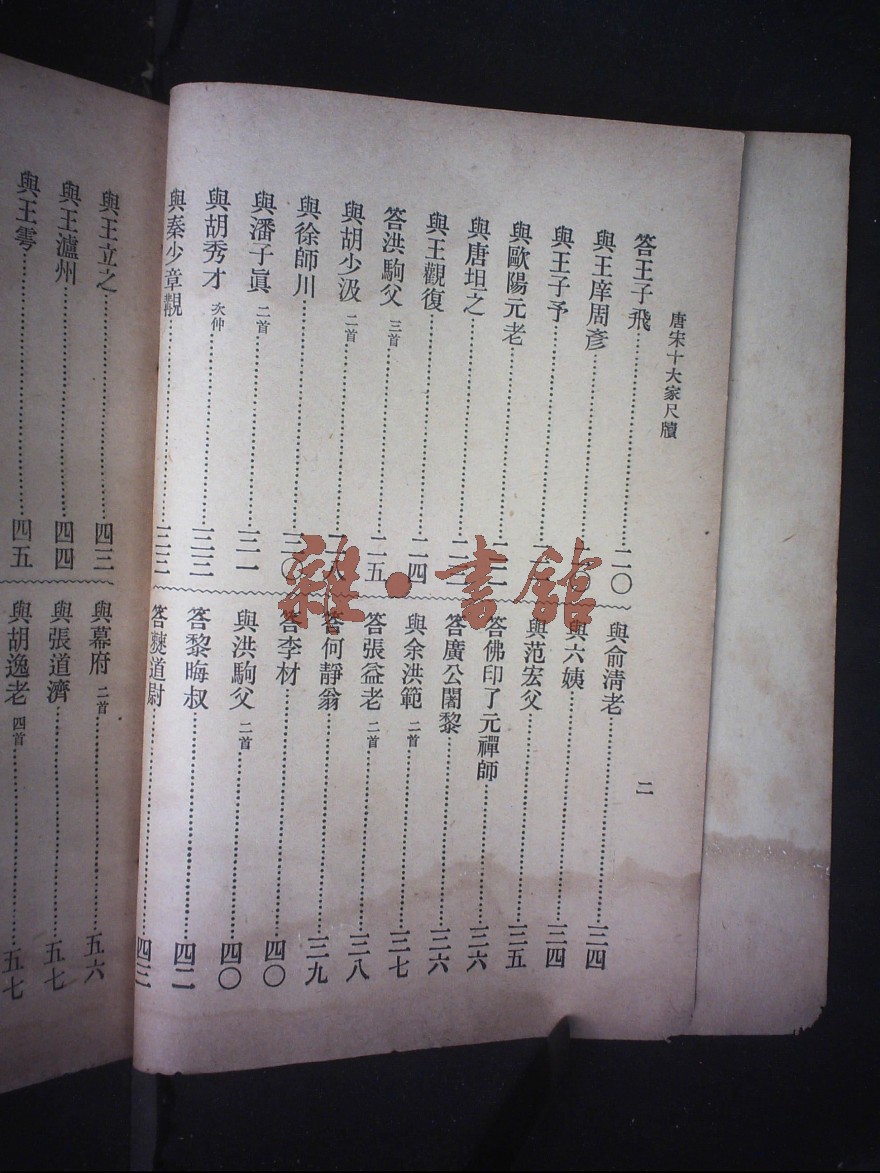 唐宋十大家尺牘
二
答王子飛……二〇
與王庠周彥……〇
與王子予……
與歐陽元老……二二
與唐坦之……二三
與王觀復……二四
答洪駒父 三首……二五
與胡少汲 二首……二八
與徐師川……三〇
與潘子眞 二首……三一
與胡秀才 次仲……三二
與秦少章覯……三三
與俞淸老……三四
與六姨……三四
與范宏父……三五
答佛印了元禪師……三六
答廣公闍黎……三六
與余洪範 二首……三七
答張益老 二首……三八
答何靜翁……三九
答李材……四〇
與洪駒父 二首……四〇
答黎晦叔……四二
答道尉……四三
與王立之……四三
與王瀘州……四四
與王雱……四五
與幕府 二首……五六
與張道濟……五七
與胡逸老 四首……五七
雜·書館